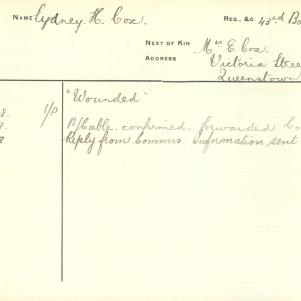 NAME Sydney. H. Cox. REG. &C 43rd Ba
NEXT OF KIN Mrs E. Cox.
ADDRESS Victoria Stree
Queenstown
"Wounded"
8. 1/P B/Cable confirmed forwarded Co
9.
8 Reply from Comms. Information sent